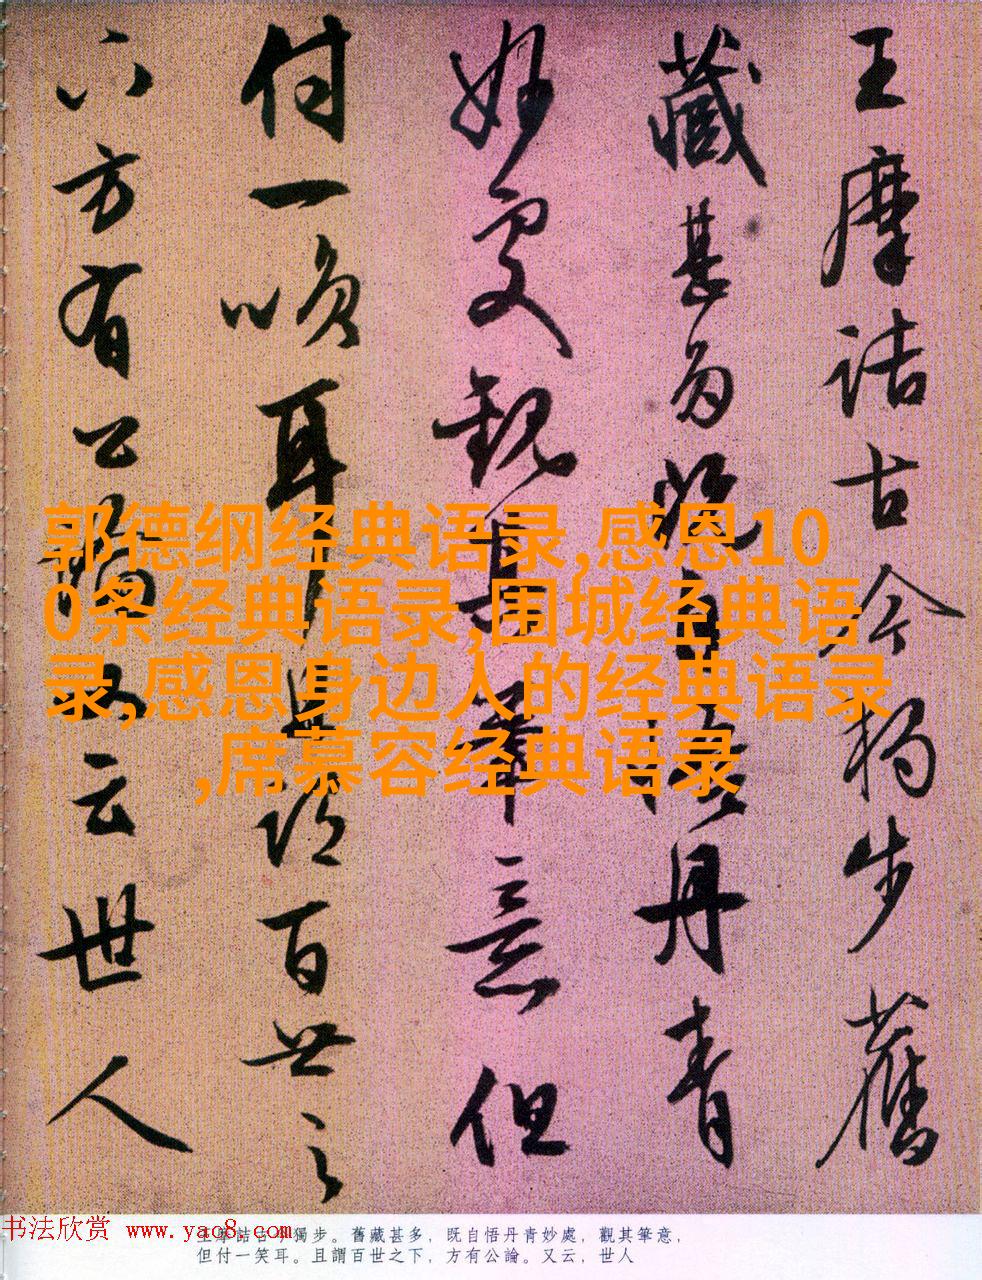 王摩詰古今獨步舊
藏甚多既自悟丹青
妙處觀其筆意但
付一笑耳且謂百世之
下方有公論又云世人
郭德纲经典语录,感恩10
0条经典语录,围城经典语
录,感恩身边人的经典语录
,席慕容经典语录
书法欣赏 www.yac8.com
王摩詰古今獨步。舊藏甚多，既自悟丹青妙處，觀其筆意，
但付一笑耳。且謂百世之下，方有公論。又云，世人